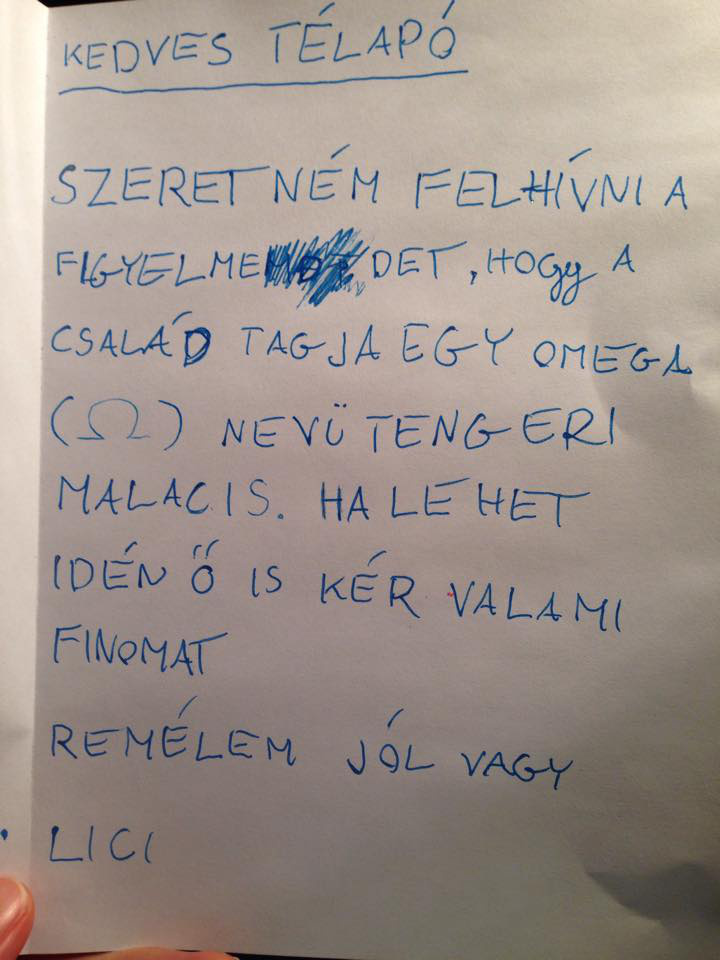 KEDVES TÉLAPÓ
SZERETNÉM FELHÍVNI A
FIGYELMEDET, HOGY A
CSALÁD TAGJA EGY OMEGA
(Ω) NEVÜ TENGERI
MALAC IS. HA LEHET
IDÉN Ő IS KÉR VALAMI
FINOMAT
REMÉLEM JÓL VAGY
LICI